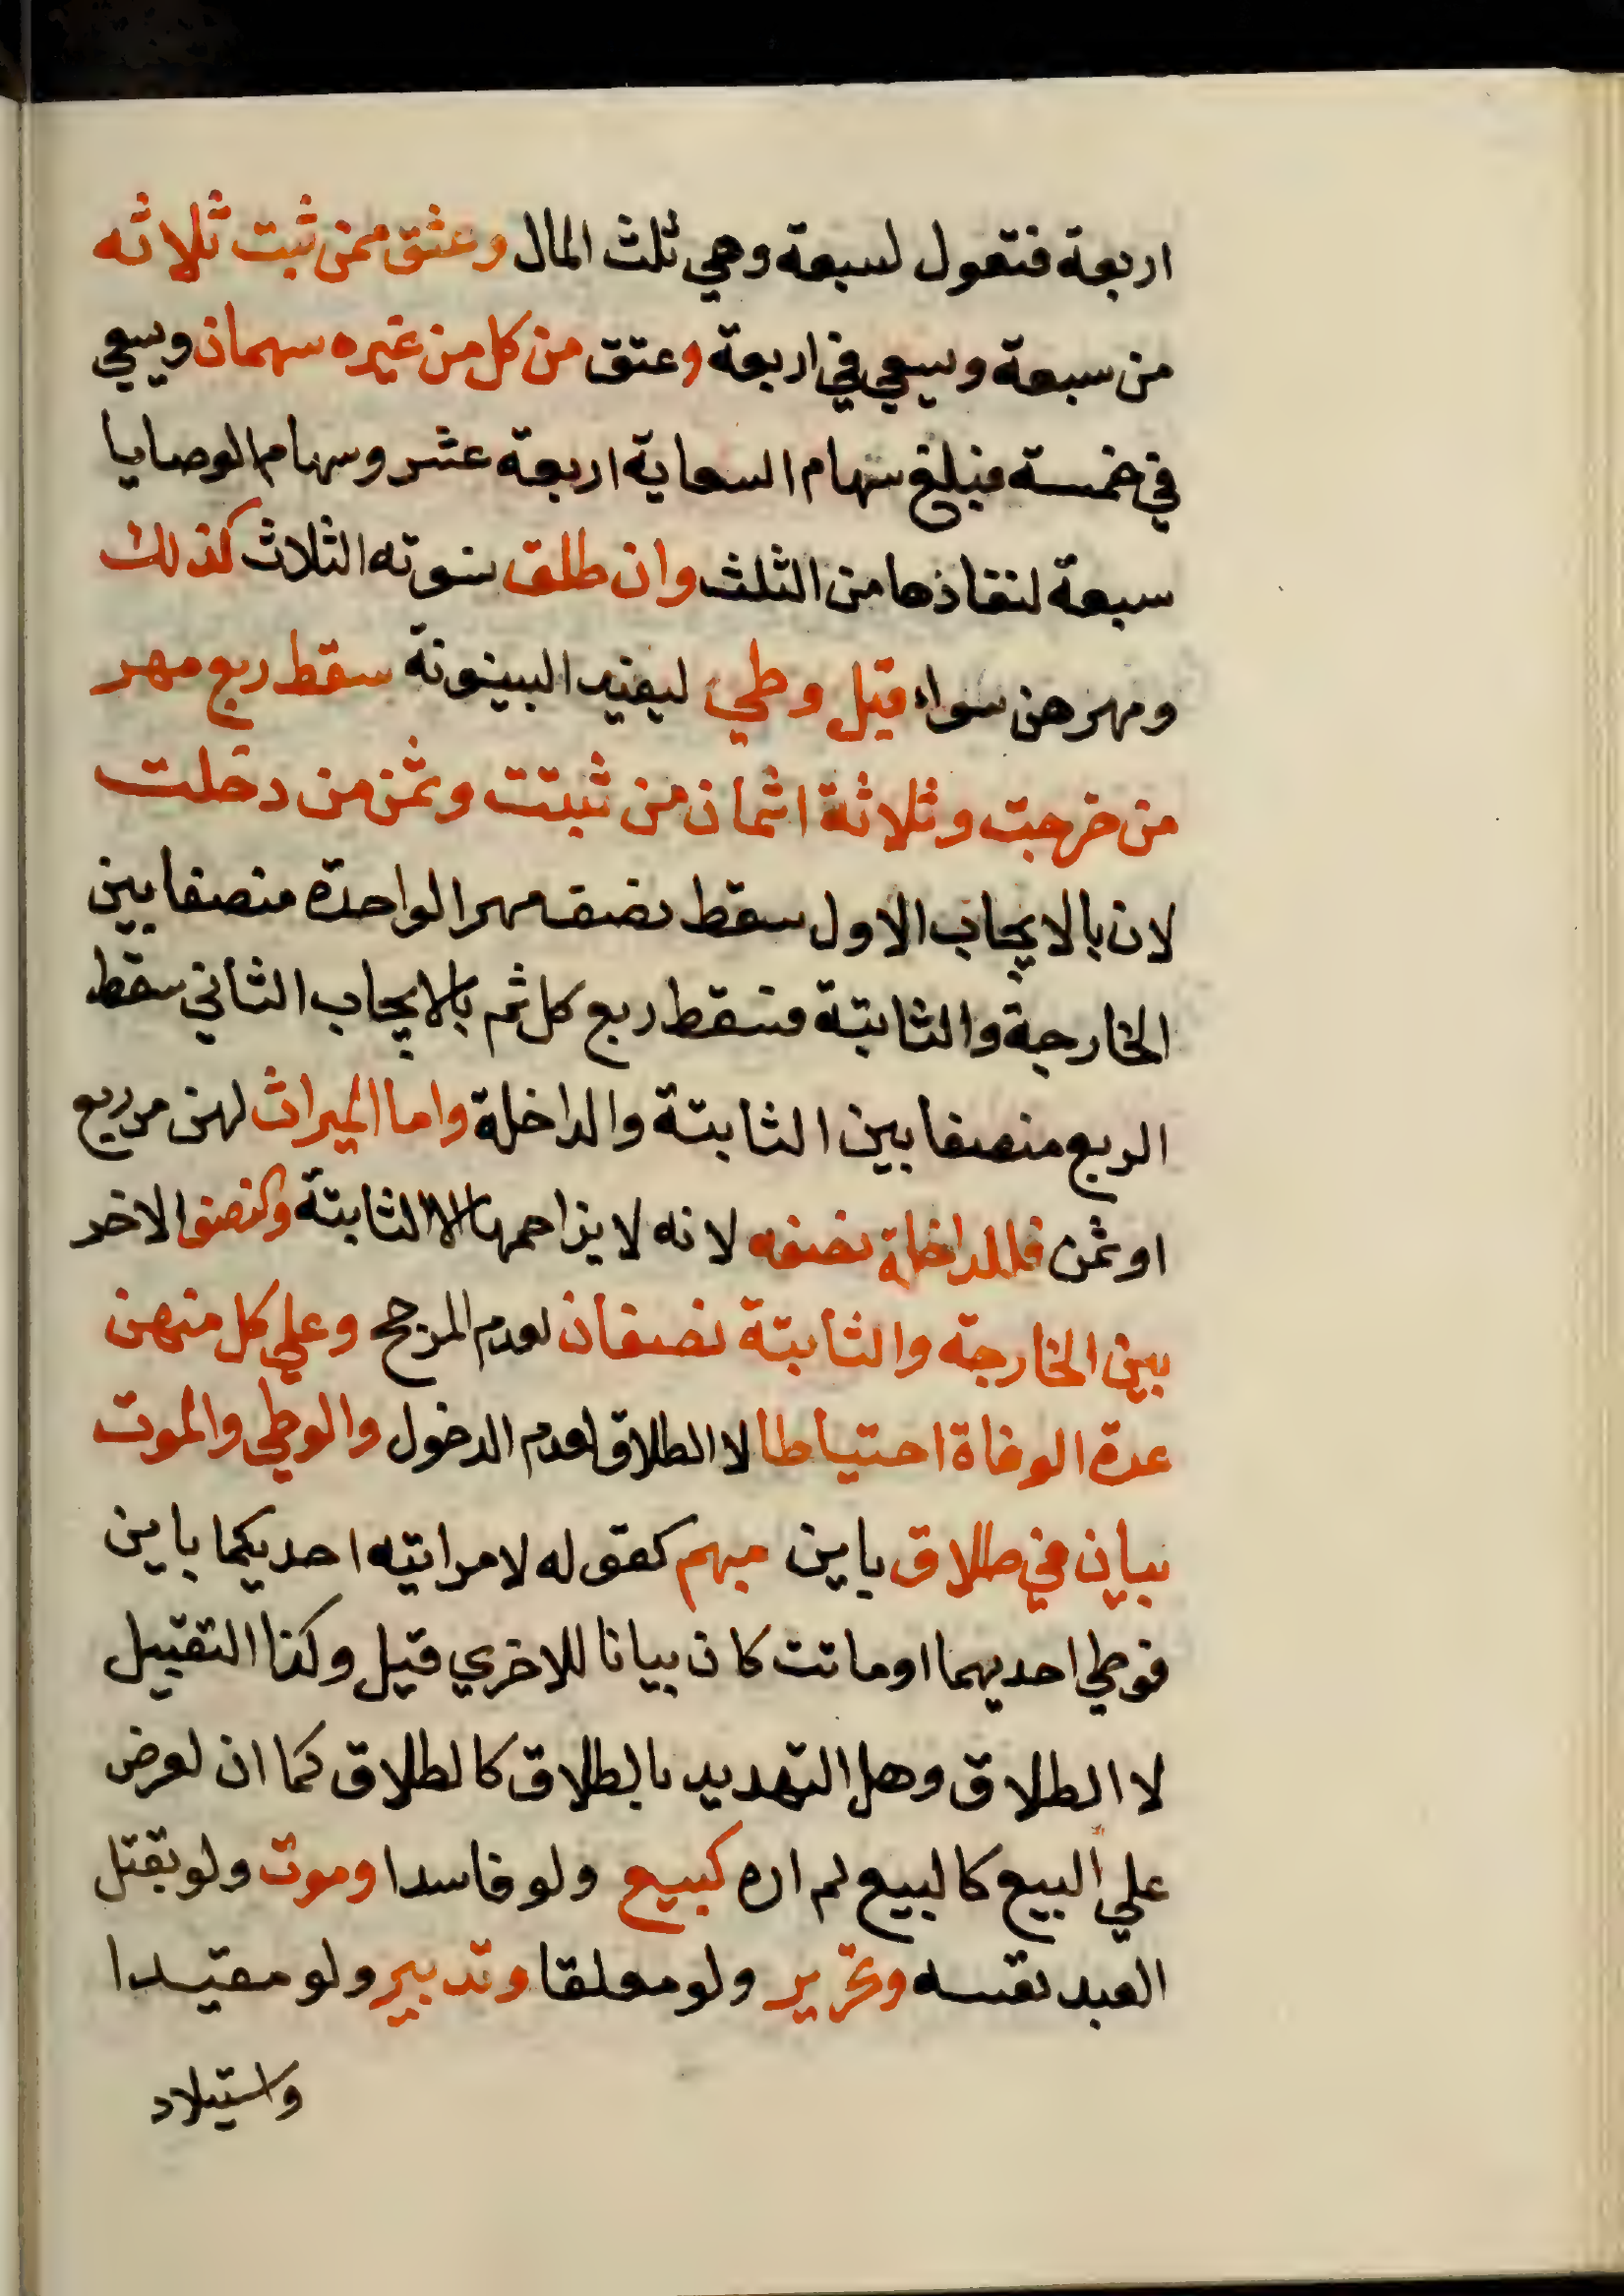 اربعة فتعول لسبعة وهي ثلث المال وعتق ممن ثبت ثلاثه
من سبعة ويسعي في اربعة وعتق من كل من غيره سهمان ويسعي
في خمسة فبلغ سهام السعاية اربعة عشر وسهام الوصايا
سبعة لنفاذها من الثلث وان طلق نسوته الثلاث كذلك
ومهرهن سواء قبل وطي ليفيد البينونة سقط ربع مهر
من خرجت وثلاثة اثمان من ثبتت وثمن من دخلت
لان بالايجاب الاول سقط نصف مهر الواحدة منصفا بين
الخارجة والثابتة فسقط ربع كل ثم بالايجاب الثاني سقط
الربع منصفا بين الثابتة والداخلة واما الميراث لهن من ربع
او ثمن فللداخلة نصفه لانه لا يزاحمها الا الثابتة والنصف الاخر
بين الخارجة والثابتة نصفان لعدم المرجح وعلي كل منهن
عدة الوفاة احتياطا لا الطلاق لعدم الدخول والوطي والموت
بيان في طلاق باين مبهم كقوله لامراتيه احديكما باين
فوطي احديهما او ماتت كان بيانا للاخري قيل وكذا التقبيل
لا الطلاق وهل التهديد بالطلاق كالطلاق كما ان لعرض
علي البيع كالبيع لم اره كبيع ولو فاسدا وموت ولو بقتل
العبد نفسه وتحرير ولو معلقا وتدبير ولو مقيدا
واستيلاد